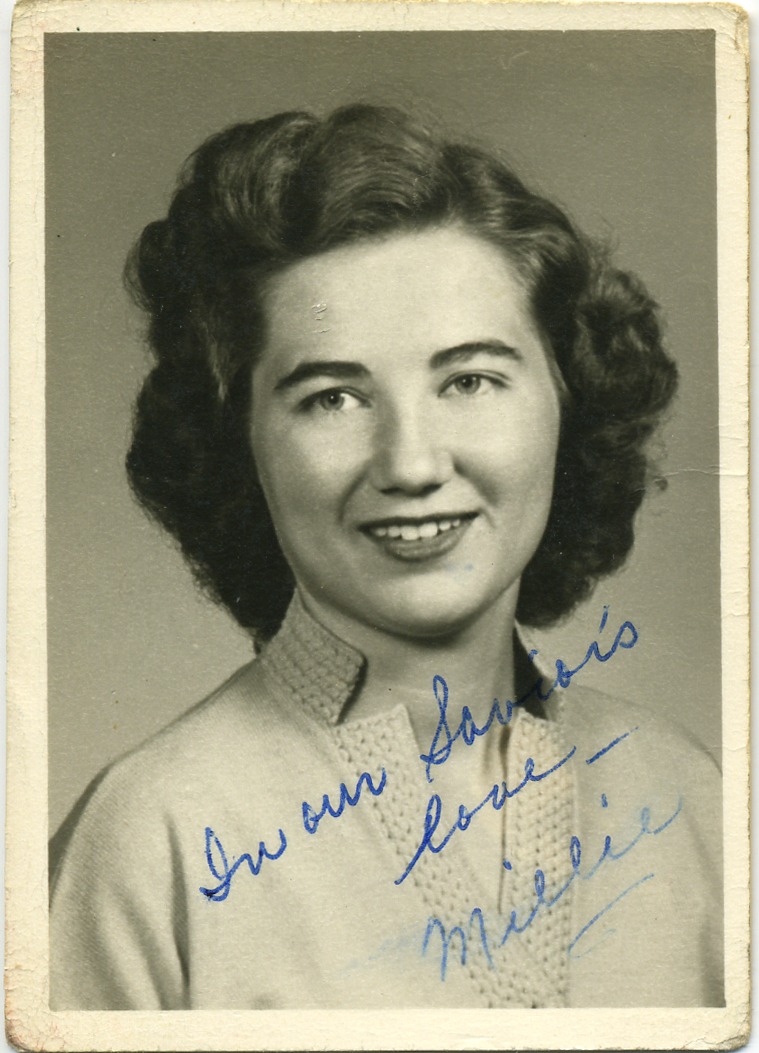 In our Savior's
love –
Millie